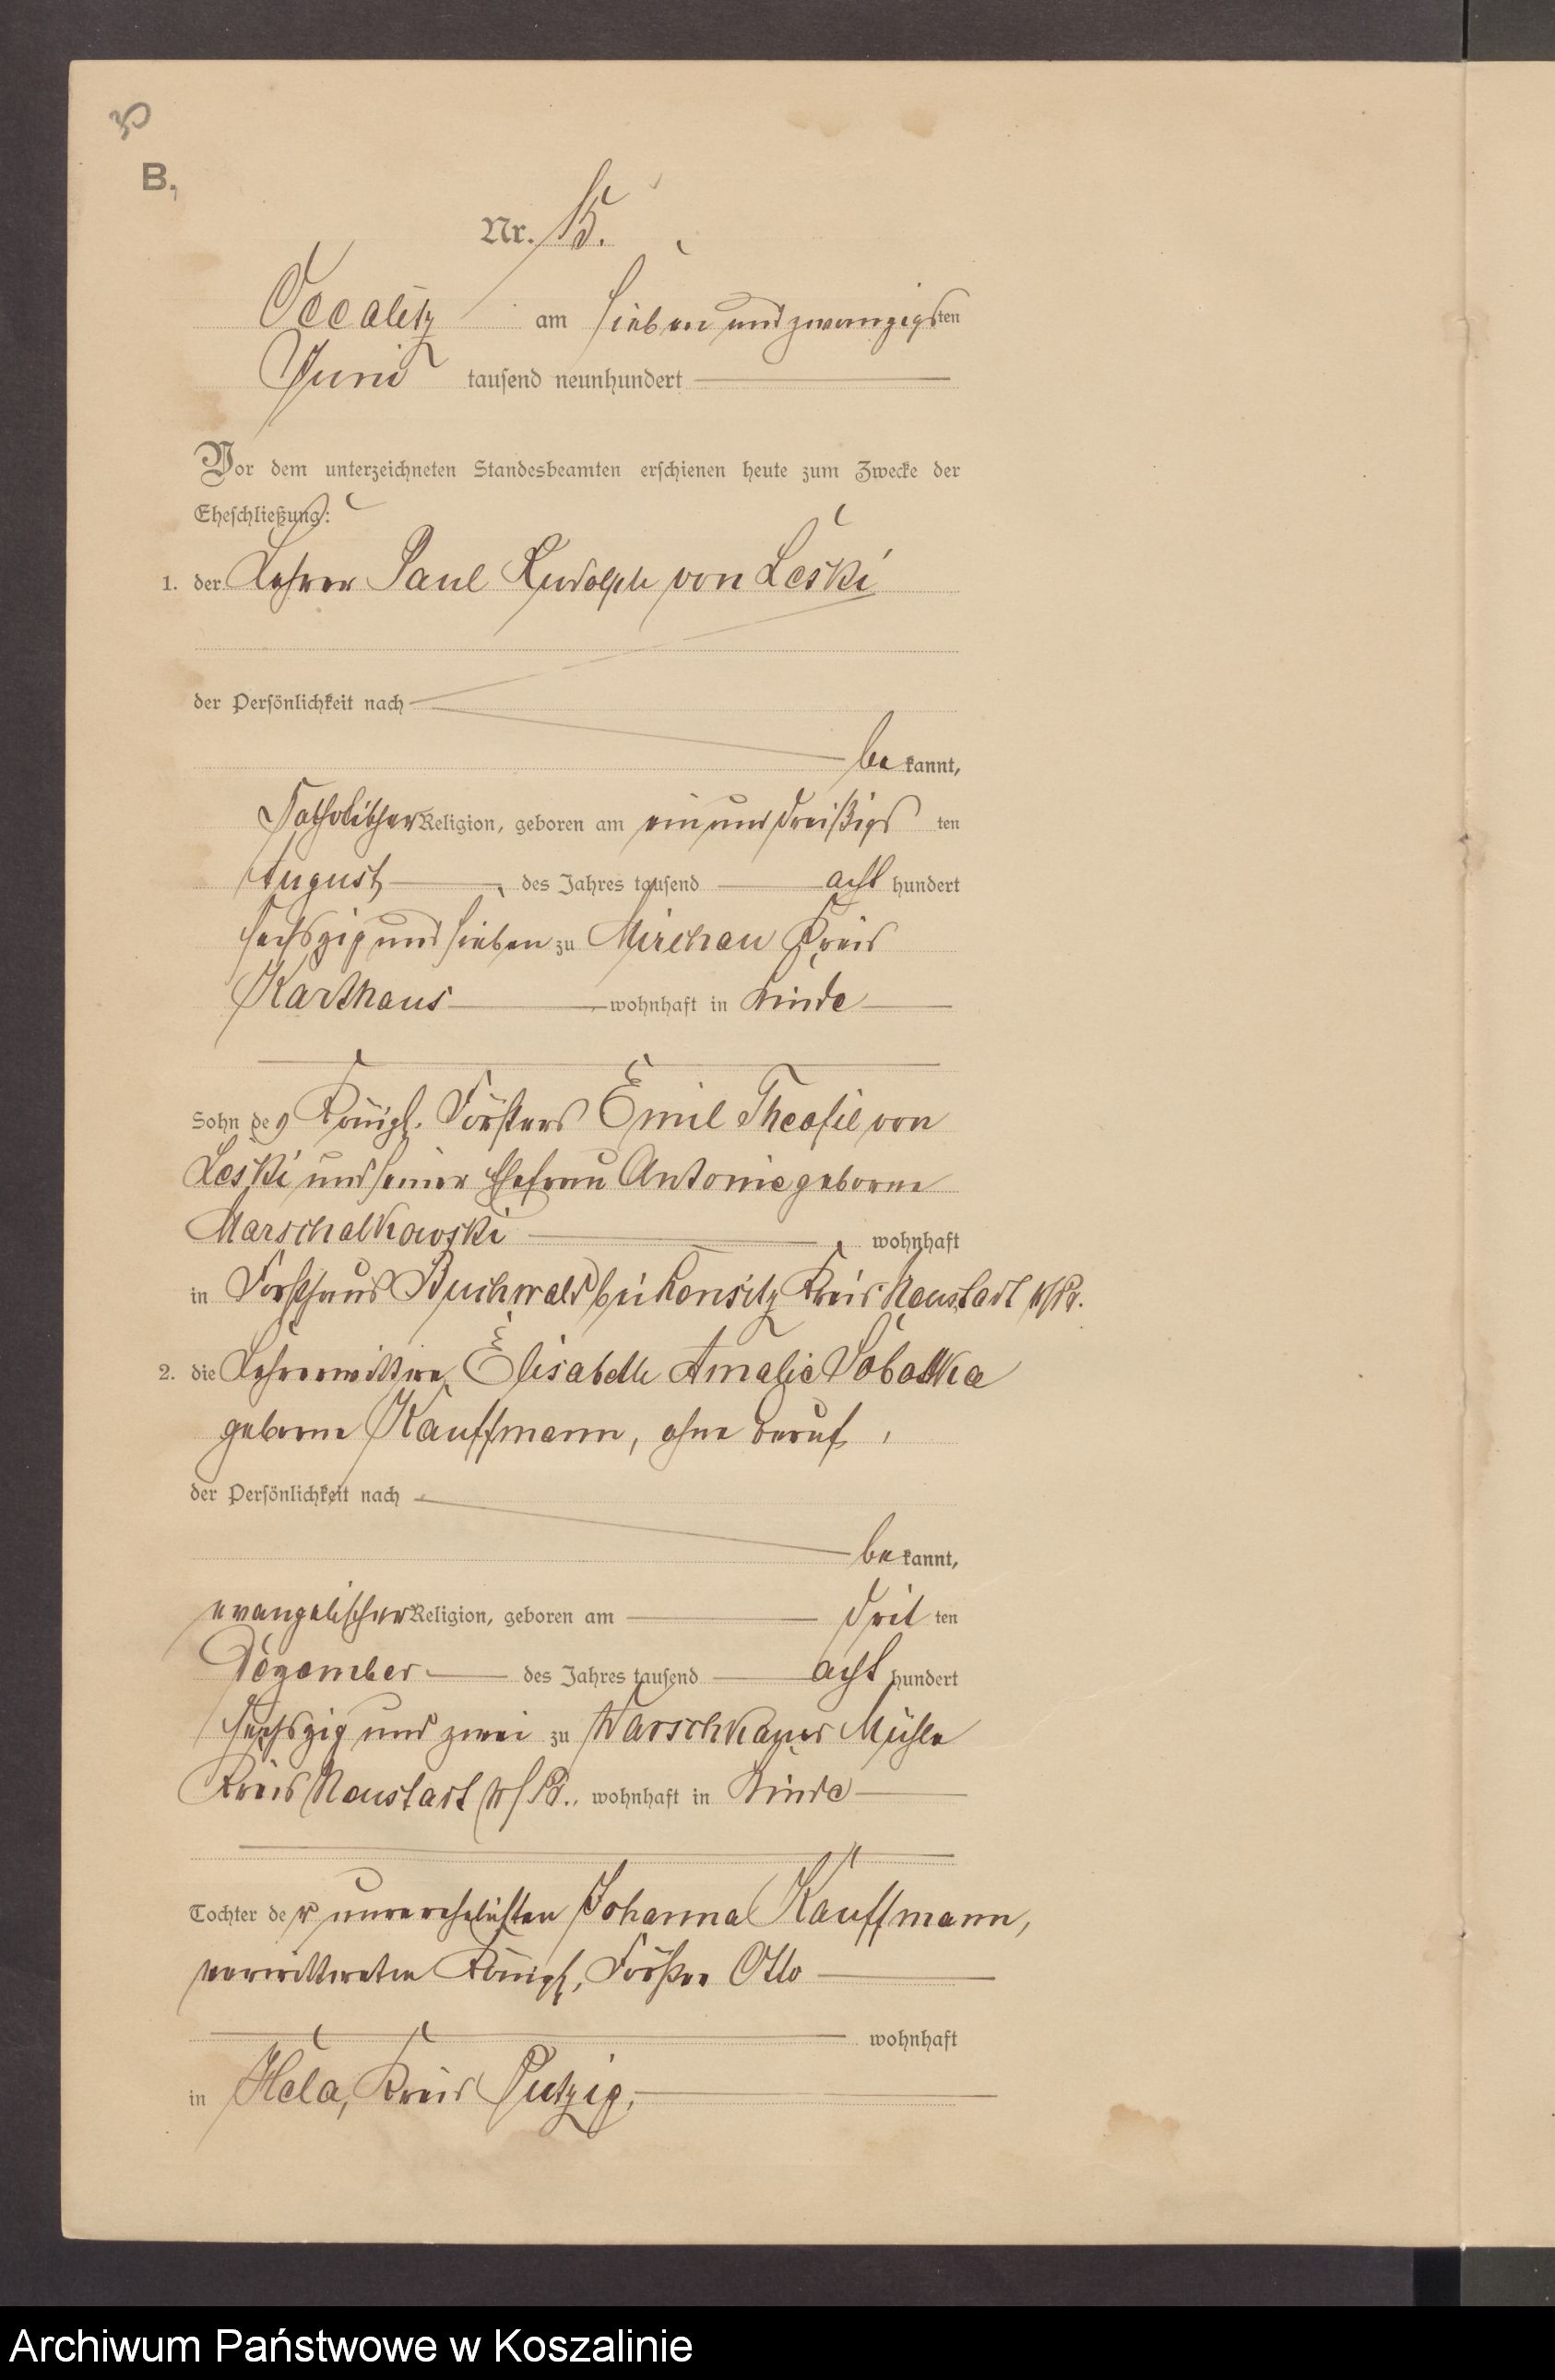 30
B.
Nr. 15.
Occalitz am sieben und zwanzigsten
Juni tausend neunhundert
Vor dem unterzeichneten Standesbeamten erschienen heute zum Zwecke der
Eheschließung:
1. der Lehrer Paul Rudolph von Leski
der Persönlichkeit nach
be kannt,
katholischer Religion, geboren am ein und dreißigs ten
August des Jahres tausend acht hundert
sechszig und sieben zu Mirchau Kreis
Karthaus wohnhaft in
Sohn des Königl. Försters Emil Theofil von
Leski und seiner Ehefrau Antonie geborne
Marschalkowski wohnhaft
in Forsthaus Buchwald bei Kreis Neustadt W/Pr.
2. die Lehrerwittwe Elisabeth Amalie Sobottka
geborne Kauffmann, ohne Beruf,
der Persönlichkeit nach
be kannt,
evangelischer Religion, geboren am drit ten
Dezember des Jahres tausend acht hundert
sechszig und zwei zu Warschkauer Mühle
Kreis Neustadt W/Pr., wohnhaft in
Tochter der unverehelichten Johanna Kauffmann,
verwittweten Königl. Förster Otto
wohnhaft
in Hela, Kreis Putzig,
Archiwum Państwowe w Koszalinie